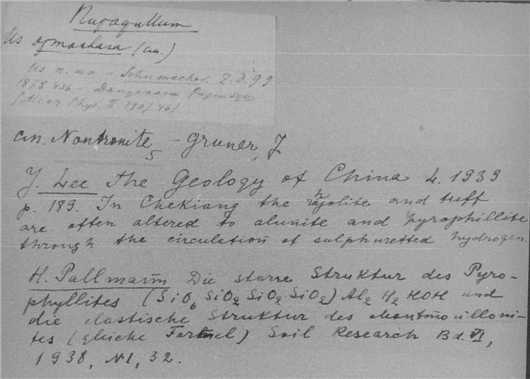 Пирофиллит
Из ортоклаза (см.)
Schumacher. Z. D. g. G.
1878. 456 –
см. Nontronite₅ – Gruner, J
J. Lee The Geology of China L. 1939
p. 189. In Chekiang the ryolite and tuff
are often altered to alunite and pyrophillite
through the circulation of sulphuretted hydrogen.
H. Pallmann Die starre Struktur des Pyro-
phyllites (SiO₆ SiO₂ SiO₂ SiO₂) Al₂ H₂ HOH und
die elastische Struktur des Montmorilloni-
tes (gleiche Formel) Soil Research Bd. VI,
1938, N1, 32.